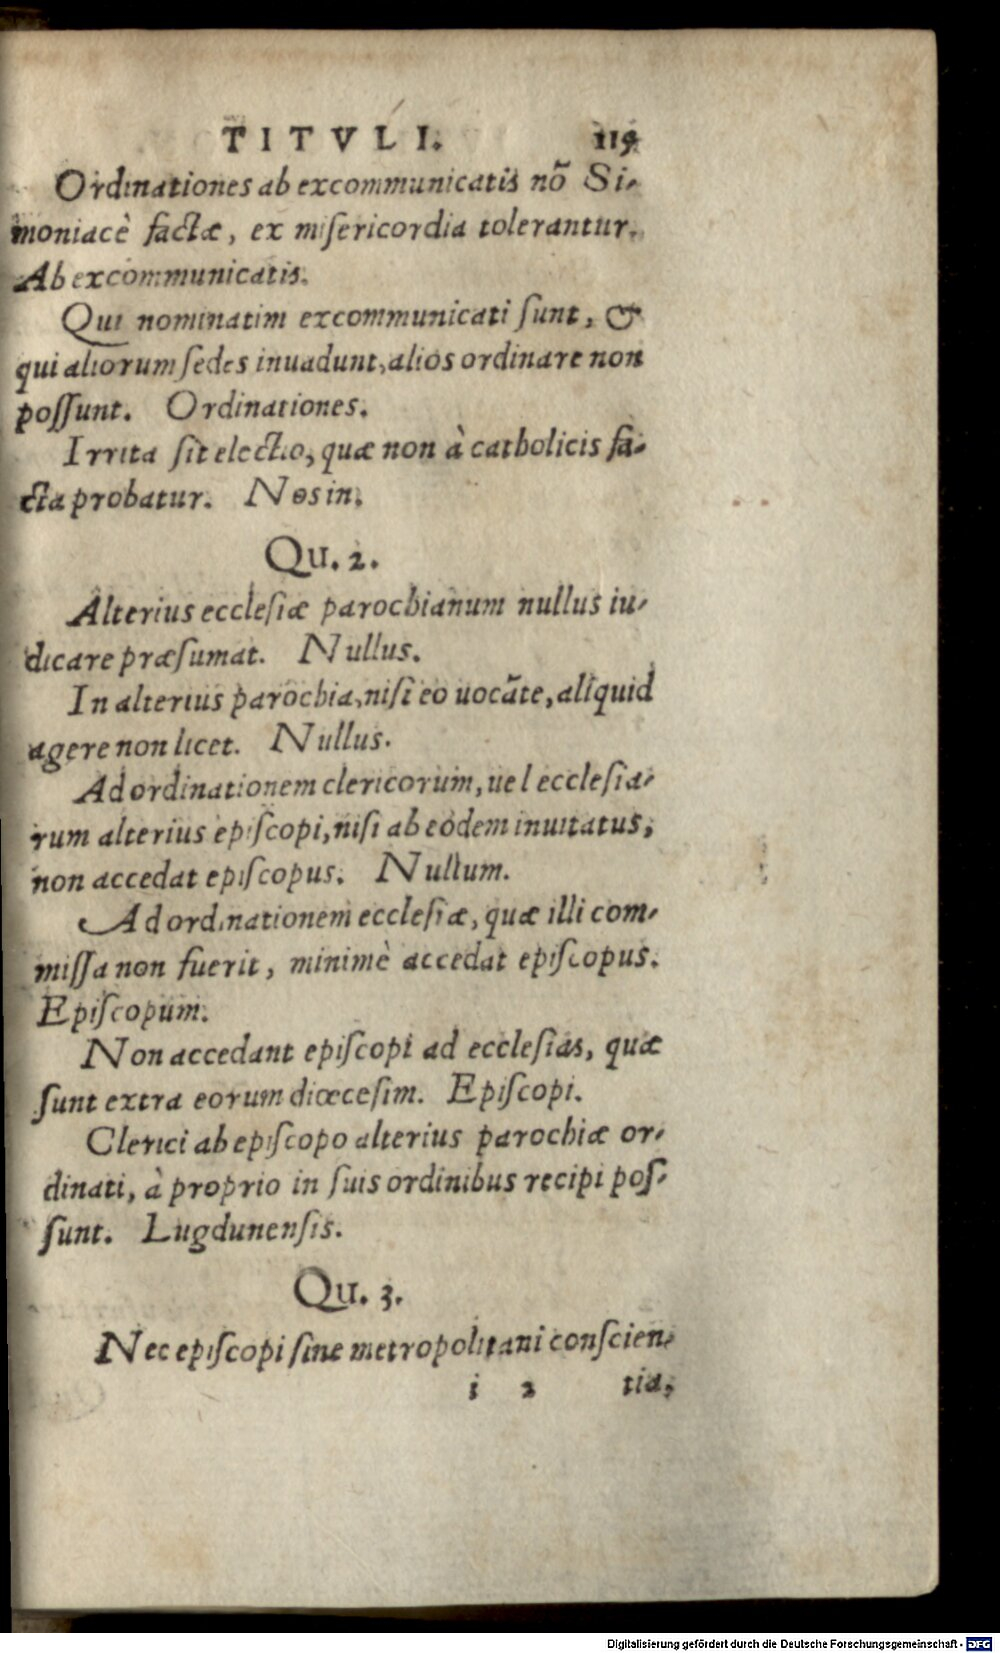 TITVLI. 119
Ordinationes ab excommunicatis nõ Si-
moniacè factæ, ex misericordia tolerantur.
Ab excommunicatis.
Qui nominatim excommunicati sunt, &
qui aliorum sedes inuadunt, alios ordinare non
possunt. Ordinationes.
Irrita sit electio, quæ non à catholicis fa-
cta probatur. Nos in.
Qu. 2.
Alterius ecclesiæ parochianum nullus iu-
dicare præsumat. Nullus.
In alterius parochia, nisi eo uocãte, aliquid
agere non licet. Nullus.
Ad ordinationem clericorum, uel ecclesia-
rum alterius episcopi, nisi ab eodem inuitatus,
non accedat episcopus. Nullum.
Ad ordinationem ecclesiæ, quæ illi com-
missa non fuerit, minimè accedat episcopus.
Episcopum.
Non accedant episcopi ad ecclesias, quæ
sunt extra eorum diœcesim. Episcopi.
Clerici ab episcopo alterius parochiæ or-
dinati, à proprio in suis ordinibus recipi pos-
sunt. Lugdunensis.
Qu. 3.
Nec episcopi sine metropolitani conscien-
i 2 tia,
Digitalisierung gefördert durch die Deutsche Forschungsgemeinschaft - DFG